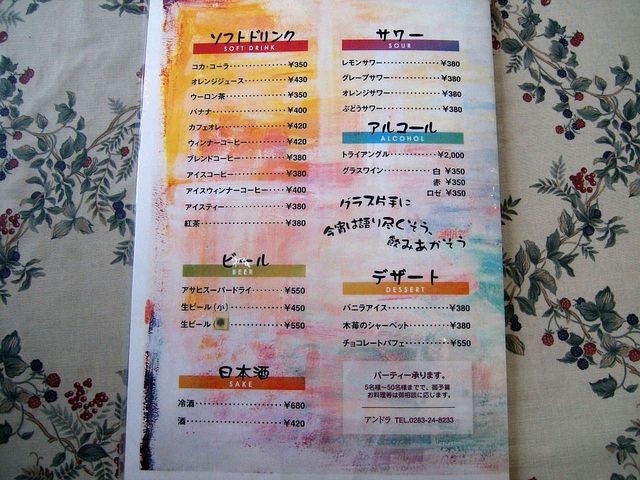 ソフトドリンク
SOFT DRINK
コカ・コーラ・・・・・・・・・・¥350
オレンジジュース・・・・・・¥430
ウーロン茶・・・・・・・・・・・¥350
バナナ・・・・・・・・・・・・・・¥400
カフェオレ・・・・・・・・・・・¥420
ウィンナーコーヒー・・・・¥420
ブレンドコーヒー・・・・・・¥380
アイスコーヒー・・・・・・・・¥380
アイスウィンナーコーヒー・・・¥400
アイスティー・・・・・・・・・・¥380
紅茶・・・・・・・・・・・・・・・・¥380
ビール
BEER
アサヒスーパードライ・・・・¥550
生ビール(小)・・・・・・・・・¥450
生ビール・・・・・・・・・¥550
日本酒
SAKE
冷酒・・・・・・・・・・・・・・・・¥680
酒・・・・・・・・・・・・・・・・・・¥420
サワー
SOUR
レモンサワー・・・・・・・・・・¥380
グレープサワー・・・・・・・・¥380
オレンジサワー・・・・・・・・¥380
ぶどうサワー・・・・・・・・・・¥380
アルコール
ALCOHOL
トライアングル・・・・・・・・¥2,000
グラスワイン・・・・・・・白 ¥350
赤 ¥350
ロゼ ¥350
グラス片手に
今宵は語り尽くそう、
飲みあかそう
デザート
DESSERT
バニラアイス・・・・・・・・・・¥380
木苺のシャーベット・・・・¥380
チョコレートパフェ・・・・¥550
パーティー承ります。
5名様〜50名様までで、御予算
お料理等は御相談に応じます。
アンドラ TEL.0283-24-8233